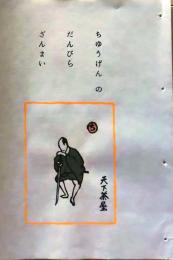 ちゆうげん の
だんびら
ざんまい
天下茶屋